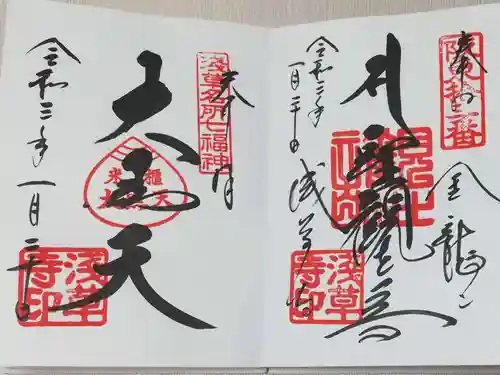 奉拝
坂東十三番
金龍山
聖観世音
浅草寺
浅草寺印
令和三年
一月二十日
奉拝
浅草名所七福神
大黒天
米櫃
大黒天
令和三年一月二十日
浅草寺印